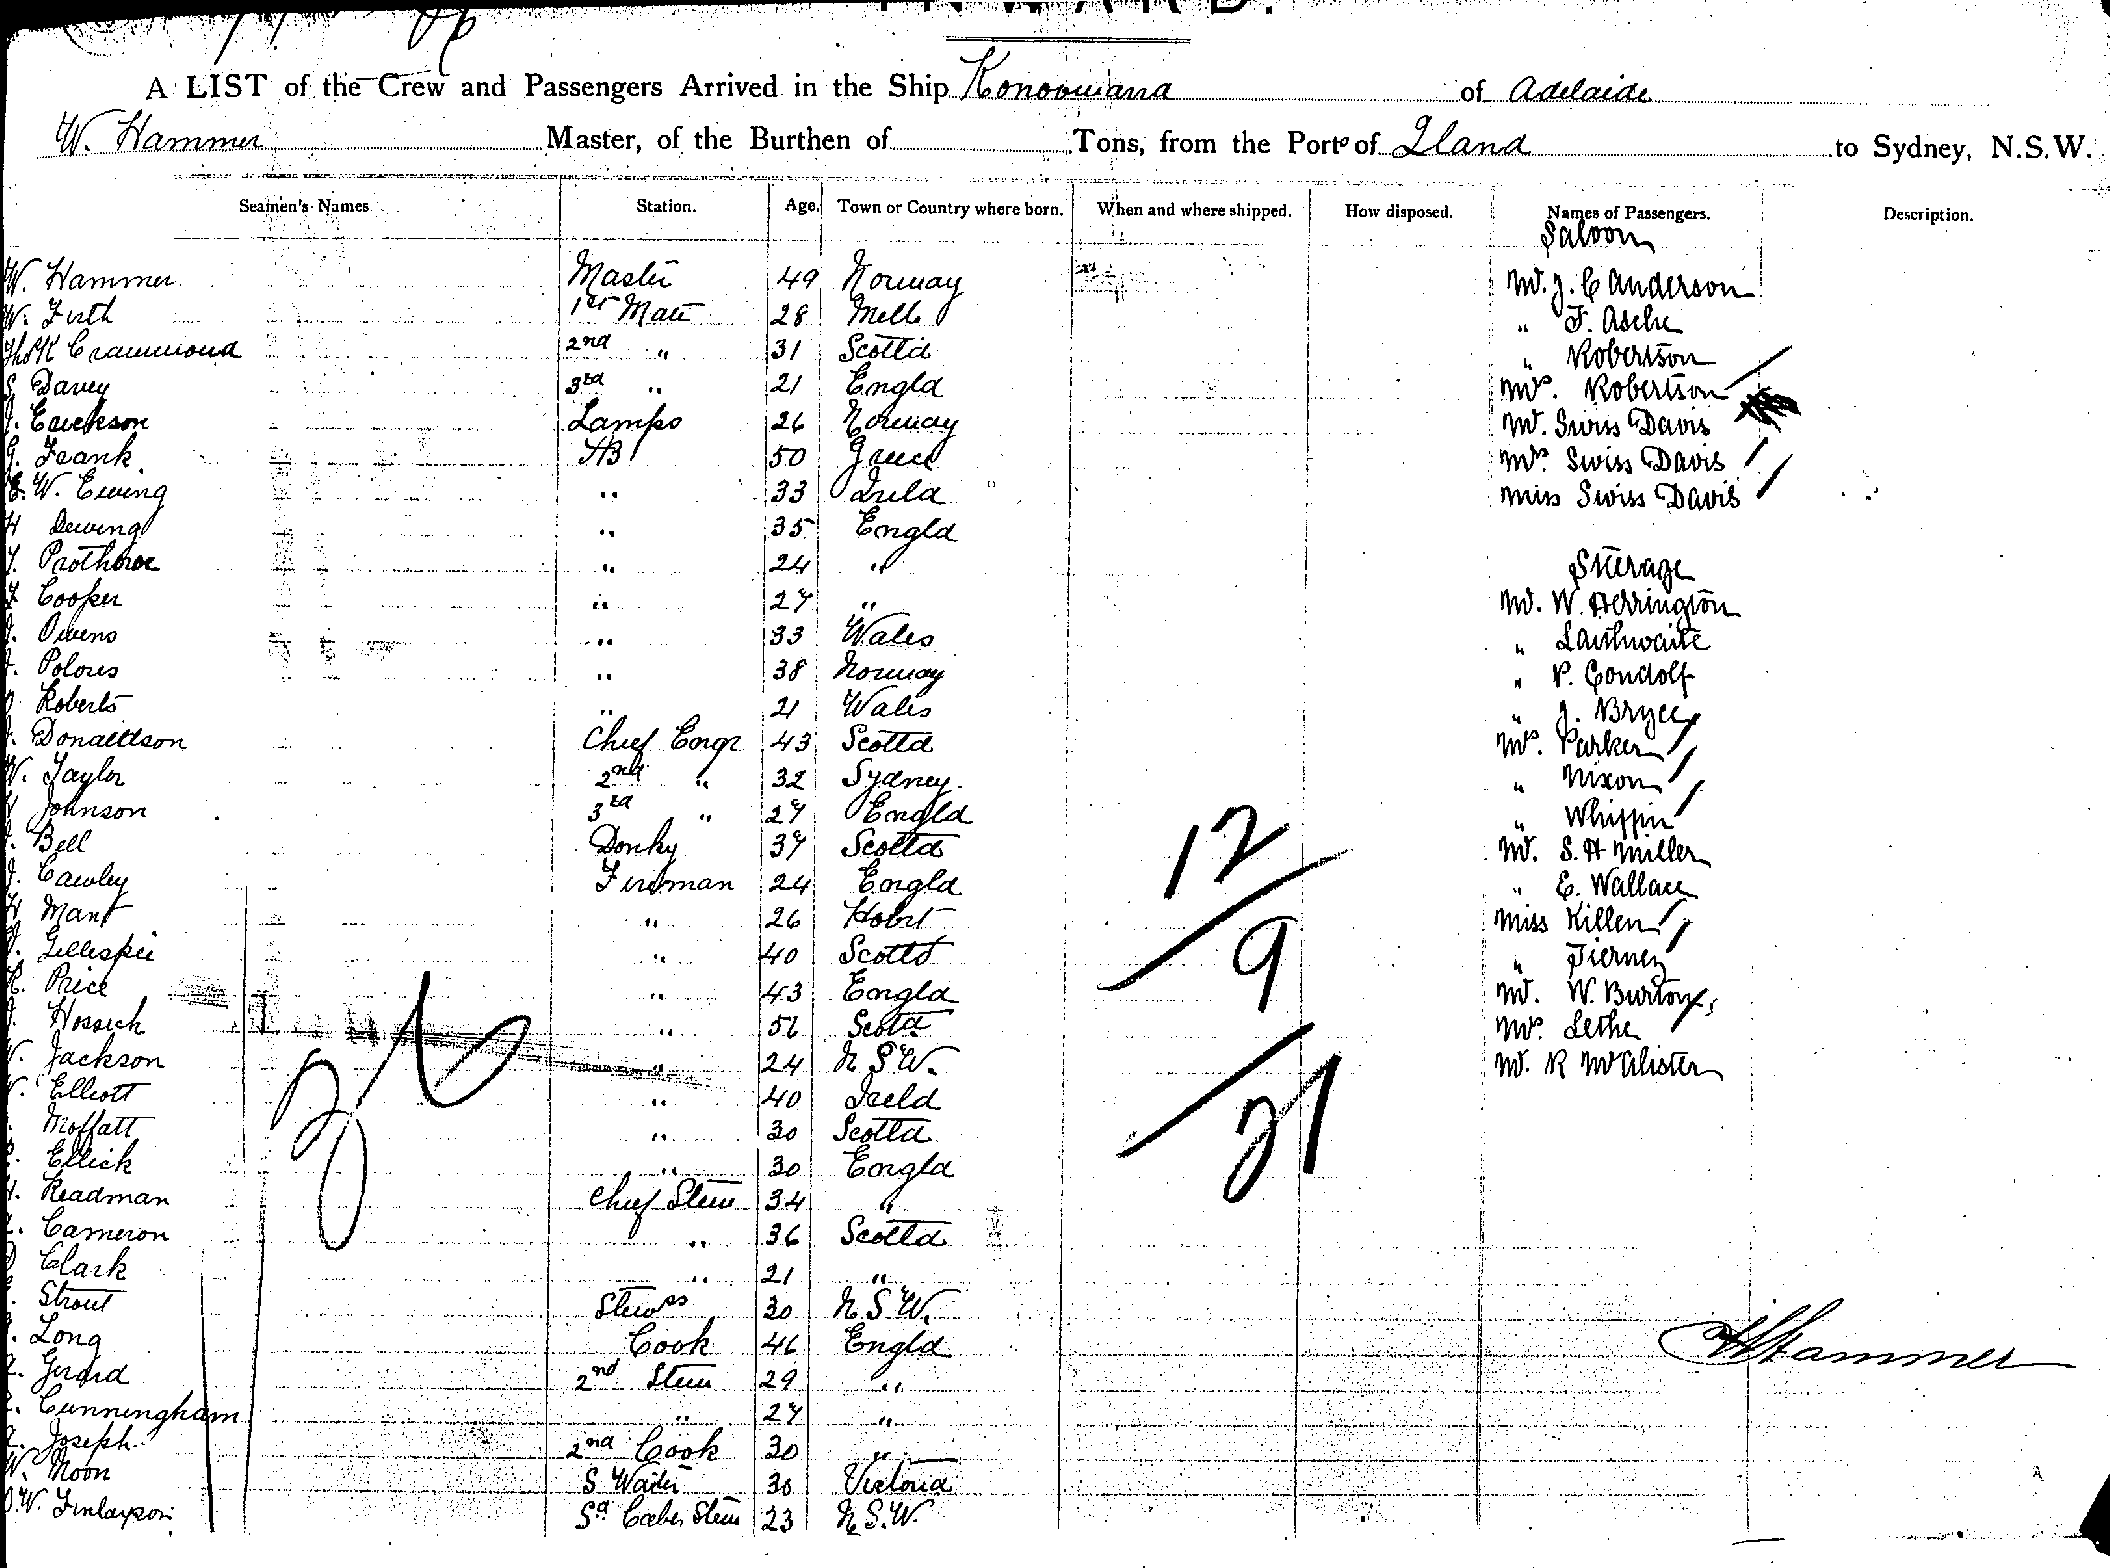 A LIST of the Crew and Passengers Arrived in the Ship Konoowarra of Adelaide
W. Hammer Master, of the Burthen of Tons, from the Port of Qland to Sydney, N.S.W.
Seamen's Names Station. Age. Town or Country where born. When and where shipped. How disposed. Names of Passengers. Description.
Saloon
W. Hammer Master 49 Norway Mr. J. C Anderson
W. Firth 1st Mate 28 Melb " F. Asche
Thos K Crammond 2nd " 31 Scottd " Robertson
Davey 3rd " 21 Engld Mrs. Robertson
Erickson Lamps 26 Norway Mr. Swiss Davis
G. Frank AB 50 Greece Mrs. Swiss Davis
E. W. Ewing " 33 Ireld Miss Swiss Davis
H Dewing " 35 Engld
Prothroe " 24 " Sterage
Cooper " 27 " Mr. W. Herrington
Owens " 33 Wales " Lauthwaite
Polous " 38 Norway " P. Gondolf
Roberts " 21 Wales " J. Bryce
Donaldson Chief Engr 43 Scottd Mrs. Parker
W. Taylor 2nd " 32 Sydney. " Nixon
Johnson 3rd " 27 Engld " Whippin
Bell Donky 37 Scottd Mr. S. H Miller
J. Cawley Fireman 24 Engld " E. Wallace
Mant " 26 Hobrt Miss Killen
Gillespie " 40 Scottd " Tierney
Price " 43 Engld Mr. W. Burton
Hossick " 56 Scottd Mrs. Lethe
W. Jackson " 24 N S W. Mr. R McAlister
Elliott " 40 Ireld
Moffatt " 30 Scottd
Ellick " 30 Engld
Readman Chief Stew 34 "
Cameron " 36 Scottd
Clark " 21 "
Strout Stewss 30 N S W.
Long Cook 46 Engld
Gerard 2nd Stew 29 "
Cunningham " 27 "
Joseph 2nd Cook 30 "
W. Moon S Waiter 30 Victoria
W. Finlayson Sa Caben Stew 23 N S.W.
12
9
21
36
W Hammer